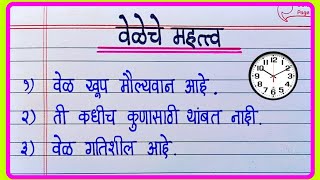 Page
वेळेचे महत्त्व
१) वेळ खूप मौल्यवान आहे.
२) ती कधीच कुणासाठी थांबत नाही.
३) वेळ गतिशील आहे.